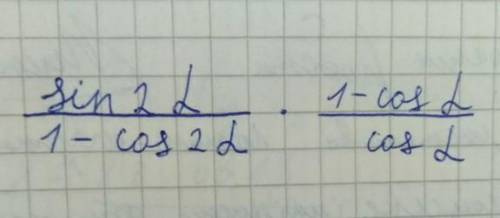 sin 2α / 1 - cos 2α · 1 - cos α / cos α